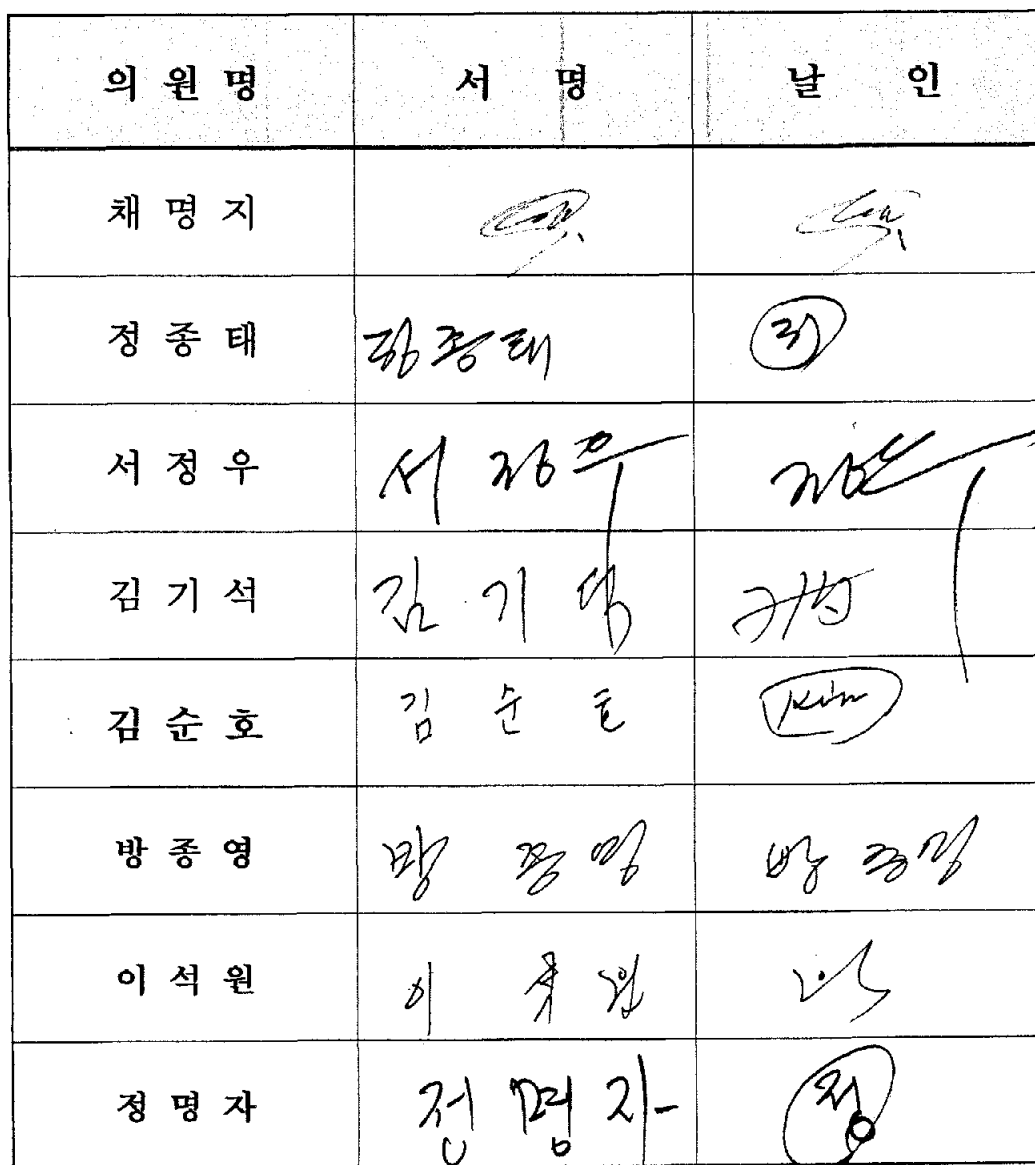 의 원 명 서 명 날 인
채 명 지
정 종 태 정종태 정
서 정 우 서 정우 정우
김 기 석 김 기 석
김 순 호 김 순 호 Kim
방 종 영 방 종 영 방 종 영
이 석 원 이 석 원
정 명 자 정 명 자 정